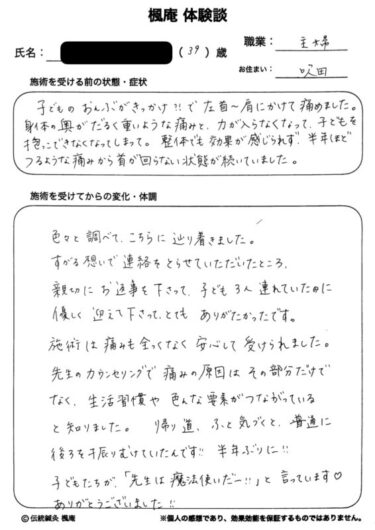 楓庵 体験談
氏名： （ 39 ）歳
職業： 主婦
お住まい： 吹田
施術を受ける前の状態・症状
子どものおんぶがきっかけ!!で左首〜肩にかけて痛めました。
身体の奥がだるく重いような痛みと、力が入らなくなって、子どもを
抱っこできなくなってしまって。整体でも効果が感じられず、半年ほど
つるような痛みから首が回らない状態が続いていました。
施術を受けてからの変化・体調
色々と調べて、こちらに辿り着きました。
すがる想いで連絡をとらせていただいたところ、
親切にお返事を下さって、子ども3人連れていたのに
優しく迎えて下さって、とてもありがたかったです。
施術は痛みも全くなく安心して受けられました。
先生のカウンセリングで痛みの原因はその部分だけで
なく、生活習慣や色んな要素がつながっている
と知りました。帰り道、ふと気づくと、普通に
後ろを振りむけていたんです!! 半年ぶりに!!
子どもたちが、「先生は魔法使いだー!!」と言っています♡
ありがとうございました!!
©伝統鍼灸 楓庵
※個人の感想であり、効果効能を保証するものではありません。